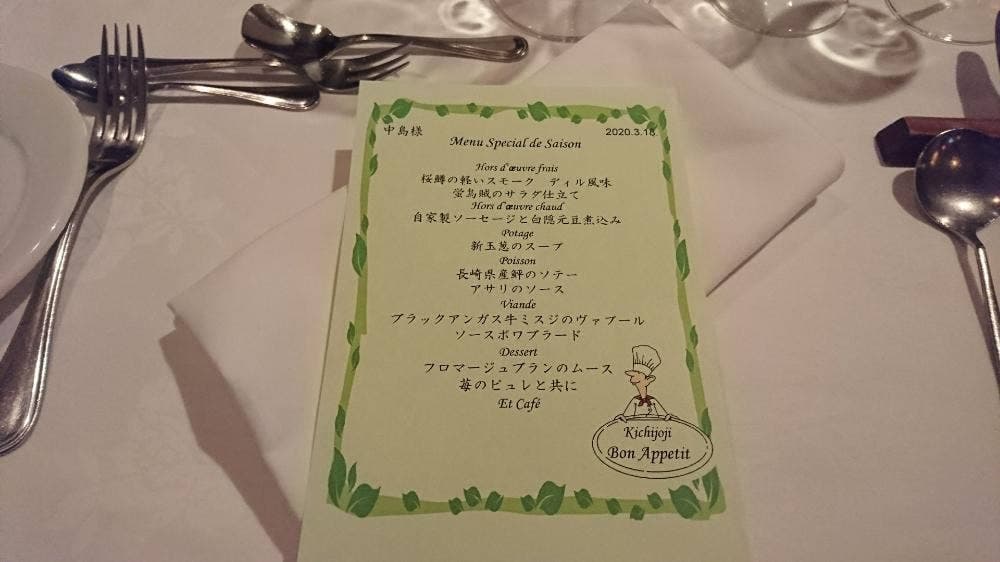 中島様
2020.3.18
Menu Special de Saison
Hors d'œuvre frais
桜鱒の軽いスモーク　ディル風味
蛍烏賊のサラダ仕立て
Hors d'œuvre chaud
自家製ソーセージと白隠元豆煮込み
Potage
新玉葱のスープ
Poisson
長崎県産鮃のソテー
アサリのソース
Viande
ブラックアンガス牛ミスジのヴァプール
ソースポワブラード
Dessert
フロマージュブランのムース
苺のピュレと共に
Et Café
Kichijoji
Bon Appetit